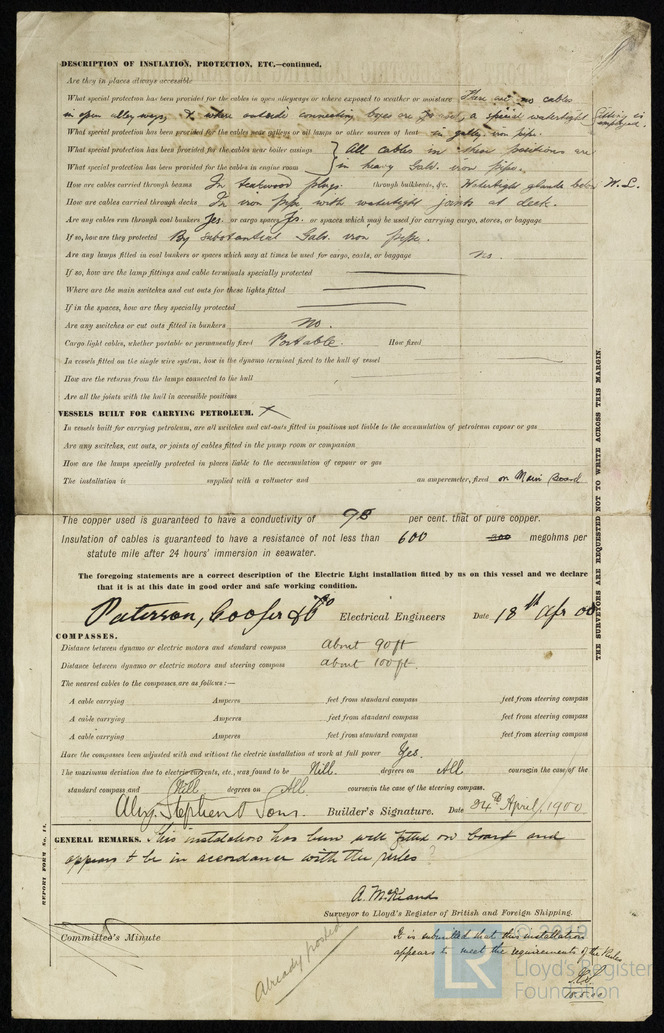 DESCRIPTION OF INSULATION, PROTECTION, ETC.—continued.
Are they in places always accessible
What special protection has been provided for the cables in open alleyways or where exposed to weather or moisture There are no cables
in open alley ways, & where outside connecting boxes are a special watertight fitting is employed.
What special protection has been provided for the cables near galleys or oil lamps or other sources of heat in galv. iron pipe.
What special protection has been provided for the cables near boiler casings } All cables in these positions are
What special protection has been provided for the cables in engine room } in heavy Galv. iron pipes.
How are cables carried through beams In teakwood plugs through bulkheads, &c. Watertight glands below W. L.
How are cables carried through decks In iron pipe with watertight joints at deck.
Are any cables run through coal bunkers Yes. or cargo spaces Yes. or spaces which may be used for carrying cargo, stores, or baggage
If so, how are they protected By substantial Galv. iron pipe.
Are any lamps fitted in coal bunkers or spaces which may at times be used for cargo, coals, or baggage no.
If so, how are the lamp fittings and cable terminals specially protected
Where are the main switches and cut outs for these lights fitted
If in the spaces, how are they specially protected
Are any switches or cut outs fitted in bunkers no.
Cargo light cables, whether portable or permanently fixed Portable. How fixed
In vessels fitted on the single wire system, how is the dynamo terminal fixed to the hull of vessel
How are the returns from the lamps connected to the hull
Are all the joints with the hull in accessible positions
VESSELS BUILT FOR CARRYING PETROLEUM. X
In vessels built for carrying petroleum, are all switches and cut-outs fitted in positions not liable to the accumulation of petroleum vapour or gas
Are any switches, cut outs, or joints of cables fitted in the pump room or companion
How are the lamps specially protected in places liable to the accumulation of vapour or gas
The installation is supplied with a voltmeter and an amperemeter, fixed on Main Board
The copper used is guaranteed to have a conductivity of 98 per cent. that of pure copper.
Insulation of cables is guaranteed to have a resistance of not less than 600 300 megohms per
statute mile after 24 hours' immersion in seawater.
The foregoing statements are a correct description of the Electric Light installation fitted by us on this vessel and we declare
that it is at this date in good order and safe working condition.
Paterson, Cooper & Co Electrical Engineers Date 18th Apr 00
COMPASSES.
Distance between dynamo or electric motors and standard compass about 90ft
Distance between dynamo or electric motors and steering compass about 100ft.
The nearest cables to the compasses are as follows:—
A cable carrying Amperes feet from standard compass feet from steering compass
A cable carrying Amperes feet from standard compass feet from steering compass
A cable carrying Amperes feet from standard compass feet from steering compass
Have the compasses been adjusted with and without the electric installation at work at full power Yes.
The maximum deviation due to electric currents, etc., was found to be Nill. degrees on All courses in the case of the
standard compass and Nill degrees on All courses in the case of the steering compass.
Alex. Stephen & Sons. Builder's Signature. Date 24th April, 1900
GENERAL REMARKS. This installation has been well fitted on board and
appears to be in accordance with the rules
A. McKeand
Surveyor to Lloyd's Register of British and Foreign Shipping.
Committee's Minute
It is submitted that this installation
appears to meet the requirements of the Rules
Already posted
THE SURVEYORS ARE REQUESTED NOT TO WRITE ACROSS THIS MARGIN.
REPORT FORM No. 11.
© 2019
LR
Lloyd's Register
Foundation